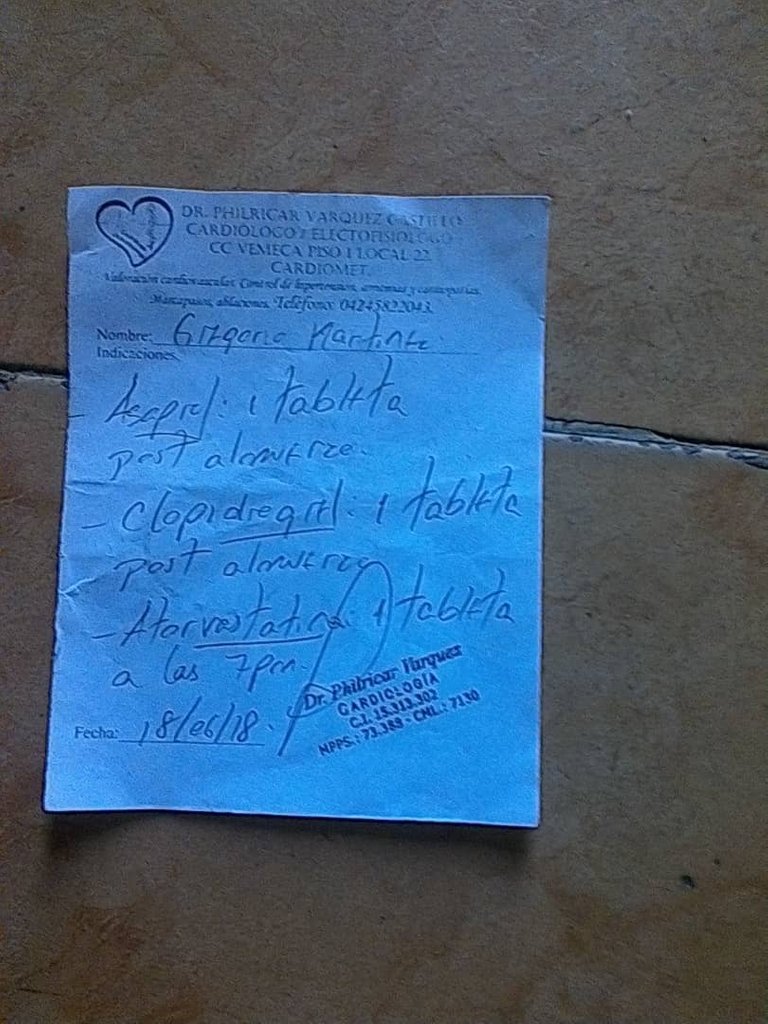 DR. PHILRICAR VARQUEZ CASTILLO
CARDIÓLOGO / ELECTOFISIOLOGO
CC VEMECA PISO 1 LOCAL 22
CARDIOMET.
Valoración cardiovascular, Control de hipertension, arritmias y
Marcapasos, ablaciones. Teléfono: 04245822043.
Nombre: Gregorio Martinez
Indicaciones
- Asaprol: 1 tableta
post almuerzo.
- Clopidregrel: 1 tableta
post almuerzo
- Atorvastatina: 1 tableta
a las 7pm.
Dr. Philricar Varquez
CARDIOLOGÍA
C.I. 15.313.302
MPPS.: 73.389 - CML.: 7130
Fecha: 18/06/18.